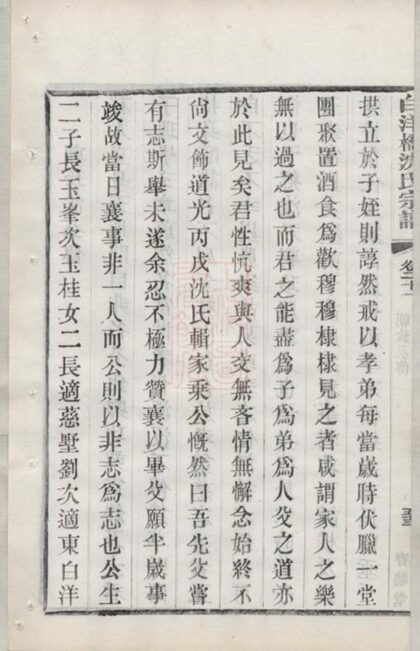 白洋橋沈氏宗譜
拱立於子姪則諄然戒以孝弟每當歲時伏臘一堂
團聚置酒食爲歡穆穆棣棣見之者咸謂家人之樂
無以過之也而君之能盡爲子爲弟爲人父之道亦
於此見矣君性伉爽與人交無吝情無懈念始終不
尙文飾道光丙戌沈氏輯家乘公慨然曰吾先父嘗
有志斯舉未遂余忍不極力贊襄以畢父願半歲事
竣故當日襄事非一人而公則以非志爲志也公生
二子長玉峯次玉桂女二長適慈墅劉次適東白洋